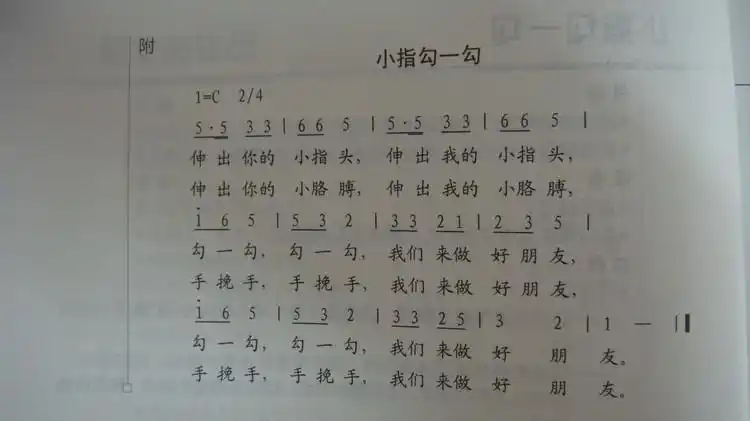 附
小指勾一勾
1=C 2/4
5·5 3 3 | 6 6 5 | 5·5 3 3 | 6 6 5 |
伸 出 你的 小指 头， 伸 出 我的 小指 头，
伸 出 你的 小胳 膊， 伸 出 我的 小胳 膊，
1̇ 6 5 | 5 3 2 | 3 3 2 1 | 2 3 5 |
勾 一 勾， 勾 一 勾， 我们 来做 好 朋 友，
手 挽 手， 手 挽 手， 我们 来做 好 朋 友，
1̇ 6 5 | 5 3 2 | 3 3 2 5 | 3 2 | 1 — ‖
勾 一 勾， 勾 一 勾， 我们 来做 好 朋 友。
手 挽 手， 手 挽 手， 我们 来做 好 朋 友。